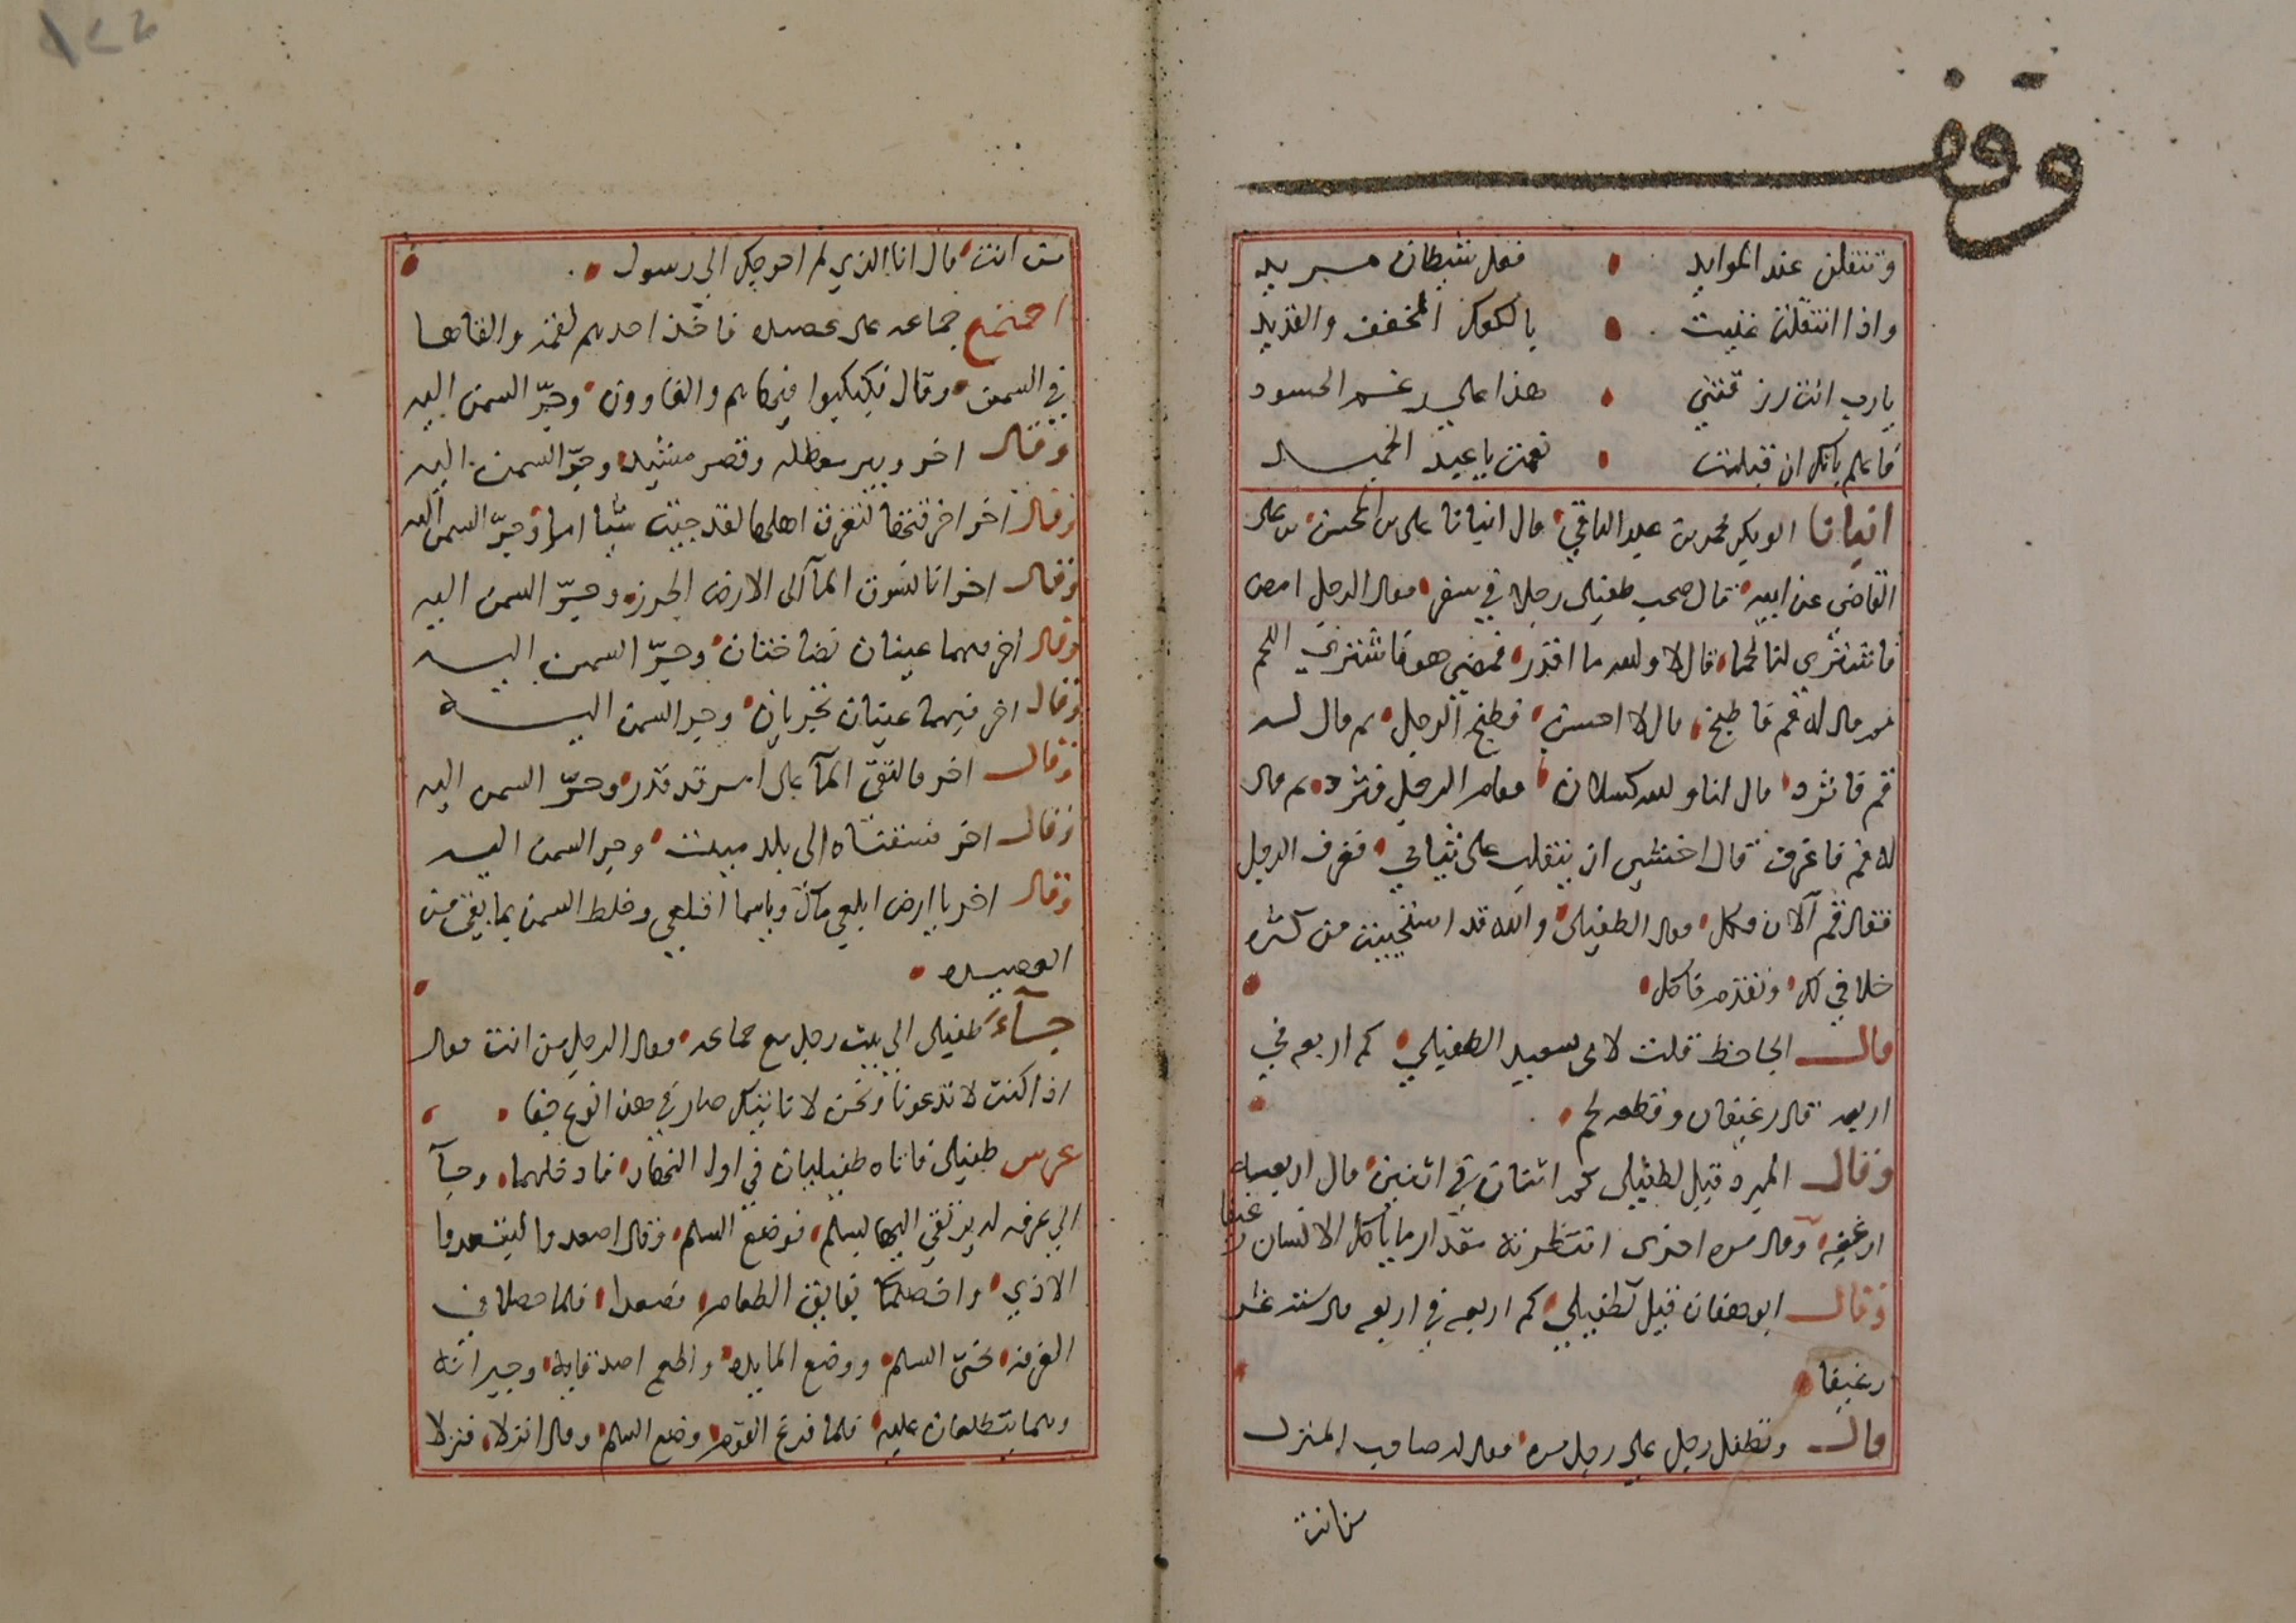 وقف
وتنقلن عند الموايد • فعل شيطان مريد
واذا انتقلت عنيت • بالكعك المخفف والقديد
يارب انت رزقتني • هذا علي رغم الحسود
فاعلم بانك ان قبلت • نعمت يا عبد الحميد
انبانا ابو بكر محمد بن عبد الباقي قال انبانا علي بن المحسن بن علي
القاضي عن ابيه قال صحب طفيلي رجلا في سفر فقال الرجل امض
فاشتري لنا لحما قال لا والله ما اقدر فمضي هو فاشتري اللحم
ثم قال له قم فاطبخ قال لا احسن فطبخ الرجل ثم قال له
قم فاثرد قال انا والله كسلان فقام الرجل فثرد ثم قال
له قم فاغرف قال اخشي ان ينقلب علي ثيابي فغرف الرجل
فقال قم الان وكل فقال الطفيلي والله قد استحييت من كثره
خلافي لك وتقدم فاكل
قال الجاحظ قلت لابي سعيد الطفيلي كم اربعه في
اربعه قال رغيفان وقطعه لحم
وقال المبرد قيل لطفيلي كم اثنان في اثنين قال اربعه
ارغفه وقال مره اخري انتظرته مقدار ما ياكل الانسان رغيفا
وقال ابو هفان قيل لطفيلي كم اربعه في اربعه قال سته عشر
رغيفا
قال وتطفل رجل علي رجل مره فقال له صاحب المنزل
من انت
من انت قال انا الذي لم احوجك الي رسول
اجتمع جماعه علي عصيده فاخذ احدهم لقمه والقاها
في السمن وقال فكبكبوا فيها هم والغاوون وجرّ السمن اليه
وقال اخر وبير معطله وقصر مشيد وجرّ السمن اليه
وقال اخر اخرقتها لتغرق اهلها لقد جيت شيا امرا وجرّ السمن اليه
وقال اخر انا نسوق المآ الي الارض الجرز وجرّ السمن اليه
وقال اخر فيهما عينان نضاختان وجرّ السمن اليه
وقال اخر فيهما عينان تجريان وجر السمن اليه
وقال اخر فالتقي المآ علي امر قد قدر وجرّ السمن اليه
وقال اخر فسقناه الي بلد ميت وجر السمن اليه
وقال اخر يا ارض ابلعي مآك ويا سما اقلعي وخلط السمن بما بقي من
العصيده
جآء طفيلي الي بيت رجل مع جماعه فقال الرجل من انت فقال
اذا كنت لا تدعونا ونحن لا ناتيك صار في هذا نوع جفا
عرس طفيلي فاتاه طفيليان في اول النهار فادخلهما وجآ
الي غرفه له يرتقي اليها بسلم فوضع السلم وقال اصعدوا لتبعدوا
الاذي واخصكما بفايق الطعام فصعدا فلما حصلا في
الغرفه نحيّ السلم ووضع المايده واطعم اصدقايه وجيرانه
وهما يتطلعان عليه فلما فرغ القوم وضع السلم وقال انزلا فنزلا